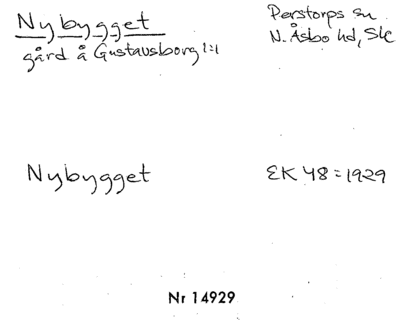 Nybygget
gård å Gustavsborg 1:1
Perstorps sn
N. Åsbo hd, Sk
Nybygget
EK 48 = 1929
Nr 14929